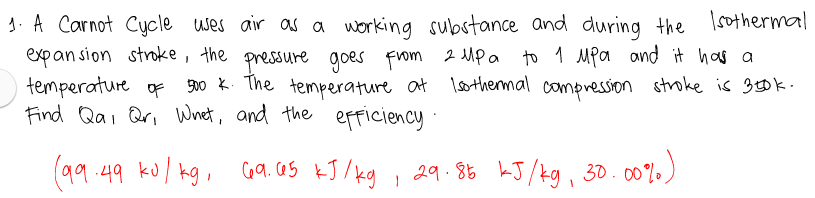 1. A Carnot Cycle uses air as a working substance and during the Isothermal
expansion stroke, the pressure goes from 2 MPa to 1 MPa and it has a
temperature of 500 K. The temperature at Isothermal compression stroke is 350K.
Find Qa, Qr, Wnet, and the efficiency.
(99.49 kJ/kg, 69.65 kJ/kg, 29.85 kJ/kg, 30.00%)